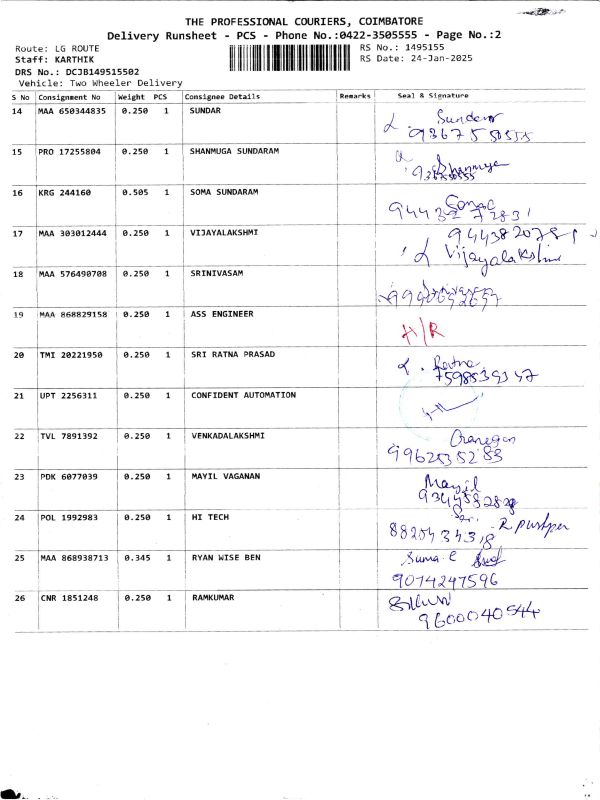 THE PROFESSIONAL COURIERS, COIMBATORE
Delivery Runsheet - PCS - Phone No.:0422-3505555 - Page No.:2
Route: LG ROUTE RS No.: 1495155
Staff: KARTHIK RS Date: 24-Jan-2025
DRS No.: DCJB149515502
Vehicle: Two Wheeler Delivery
S No Consignment No Weight PCS Consignee Details Remarks Seal & Signature
14 MAA 650344835 0.250 1 SUNDAR Sundar
9367550555
15 PRO 17255804 0.250 1 SHANMUGA SUNDARAM Shanmuga
9367550555
16 KRG 244160 0.505 1 SOMA SUNDARAM
17 MAA 303012444 0.250 1 VIJAYALAKSHMI
Vijayalakshmi
18 MAA 576490708 0.250 1 SRINIVASAM
19 MAA 868829158 0.250 1 ASS ENGINEER H/R
20 TMI 20221950 0.250 1 SRI RATNA PRASAD Ratna
21 UPT 2256311 0.250 1 CONFIDENT AUTOMATION
22 TVL 7891392 0.250 1 VENKADALAKSHMI
23 PDK 6077039 0.250 1 MAYIL VAGANAN Mayil
24 POL 1992983 0.250 1 HI TECH
25 MAA 868938713 0.345 1 RYAN WISE BEN Suma C
9014247596
26 CNR 1851248 0.250 1 RAMKUMAR
9600040544